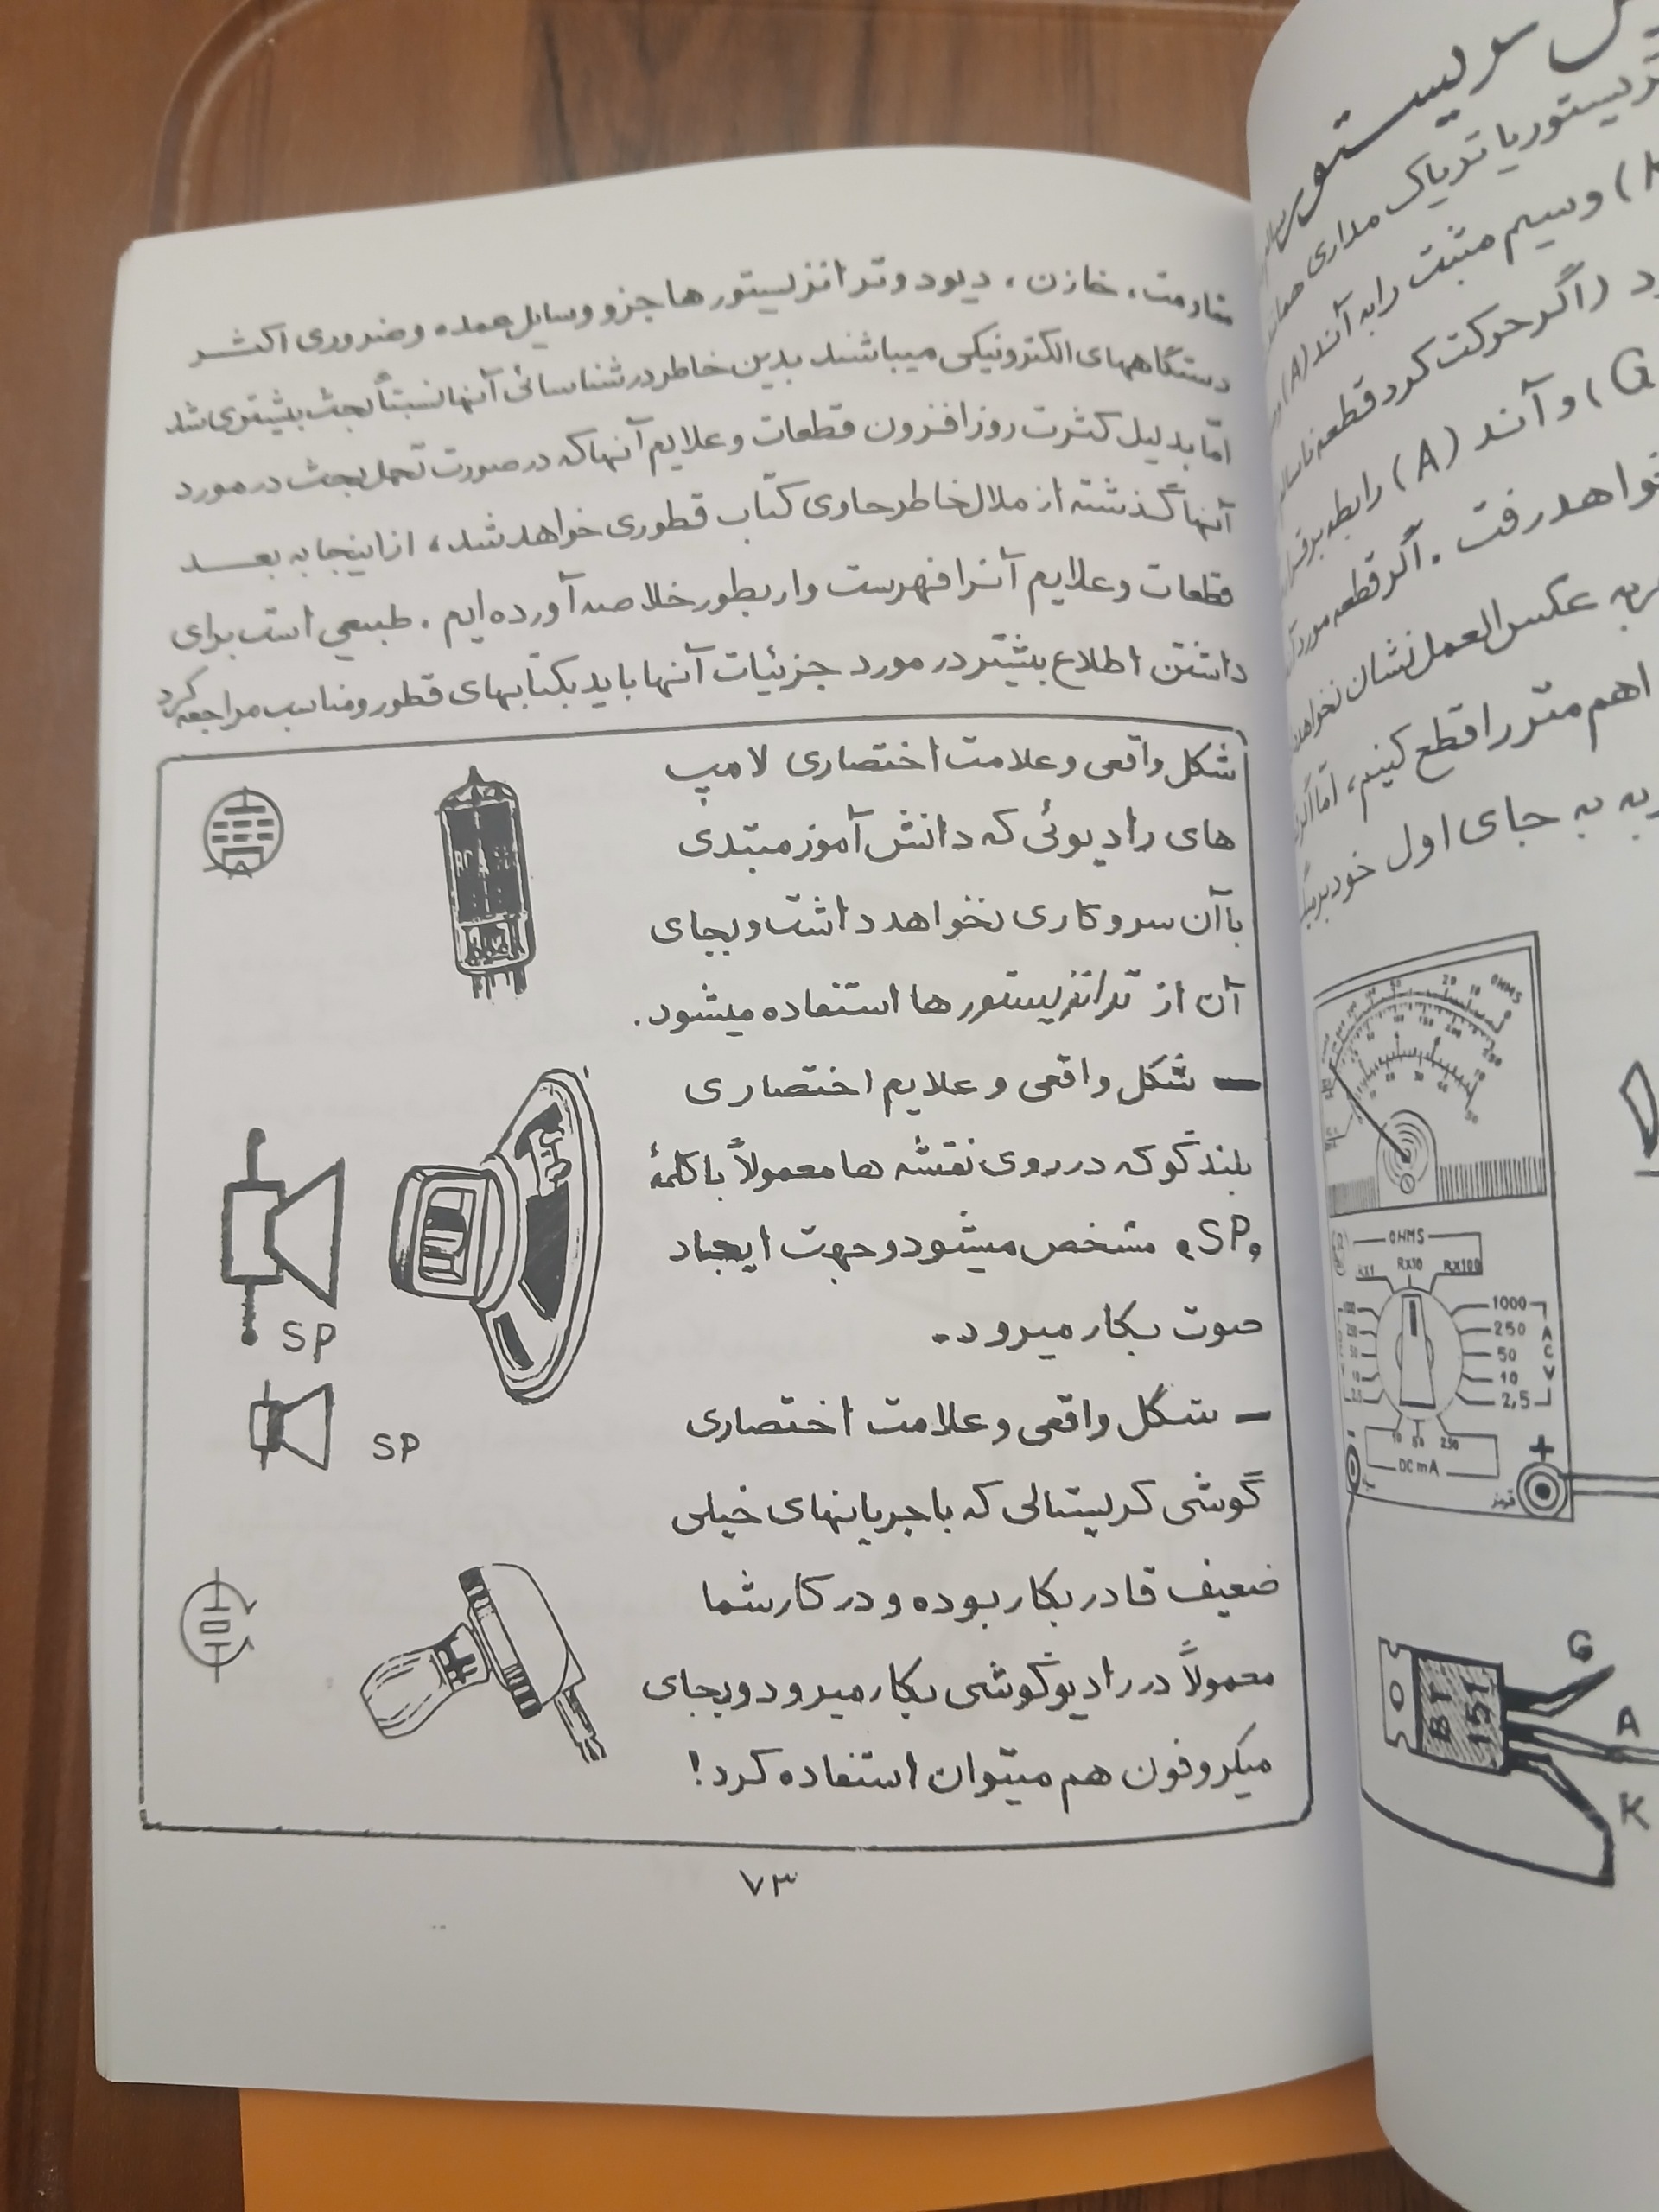 مقاومت، خازن، دیود و ترانزیستورها جزو وسایل عمده و ضروری اکثر
دستگاههای الکترونیکی میباشند بدین خاطر در شناسائی آنها نسبتاً بحث بیشتری شد
امّا بدلیل کثرت روزافزون قطعات و علایم آنها که در صورت تحمل بحث در مورد
آنها گذشته از ملال خاطر حاوی کتاب قطوری خواهد شد، از اینجا به بعد
قطعات و علایم آنرا فهرست وار بطور خلاصه آورده ایم. طبیعی است برای
داشتن اطلاع بیشتر در مورد جزئیات آنها باید بکتابهای قطور و مناسب مراجعه کرد
شکل واقعی و علامت اختصاری لامپ
های رادیوئی که دانش آموز مبتدی
با آن سروکاری نخواهد داشت و بجای
آن از ترانزیستورها استفاده میشود.
RCA
— شکل واقعی و علایم اختصاری
بلندگو که در روی نقشه ها معمولاً با کلمهٔ
«SP» مشخص میشود و جهت ایجاد
صوت بکار میرود.
SP
SP
— شکل واقعی و علامت اختصاری
گوشی کریستالی که با جریانهای خیلی
ضعیف قادر بکار بوده و در کار شما
معمولاً در رادیو گوشی بکار میرود و بجای
میکروفون هم میتوان استفاده کرد!
۷۳
تریستور یا تریاک مداری همانند
و سیم مثبت را به آند (A)
(اگر حرکت کرد قطعه ناسالم
G) و آند (A) را بطه برقرار
خواهد رفت. اگر قطعه مورد
عکس العمل نشان نخواهد
اهم متر را قطع کنیم، امّا اگر
به جای اول خود برگ
OHMS
20 10
OHMS
RX1 RX10 RX100
1000
250
50
10
2,5
ACV
10 50 250
DC mA
+
قرمز
BT
151
G
A
K